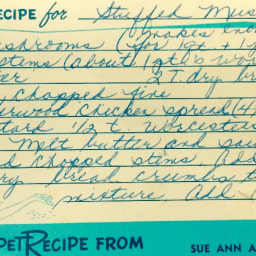 RECIPE for Stuffed Mus
(makes eno
shrooms (for 1 qt. + 1
stems (about 1 qt.
2 T. dry br
chopped fine
rwood chicken spread (4
tard 1/2 t. Worcester
Melt butter and sau
d chopped stems. Add
ry bread crumbs t
mixture. Add
PET RECIPE FROM
SUE ANN A